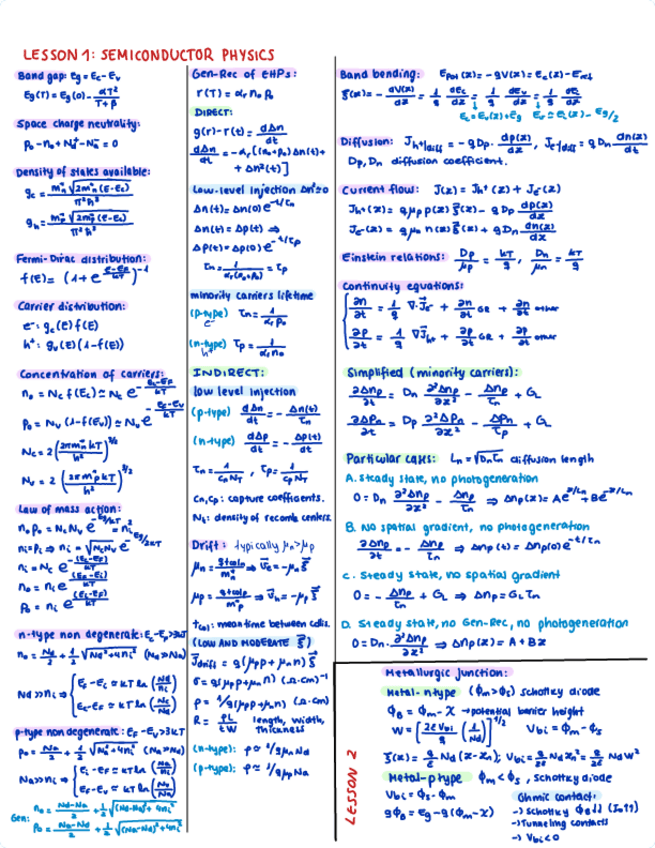 LESSON 1: SEMICONDUCTOR PHYSICS
Band gap: Eg = Ec - Ev
Eg(T) = Eg(0) - αT²/(T+β)
Space charge neutrality:
p₀ - n₀ + Nd⁺ - Na⁻ = 0
Density of states available:
gc = mn* √(2mn*(E-Ec)) / π²ħ³
Fermi-Dirac distribution:
f(E) = (1 + e^((E-EF)/kT))⁻¹
Carrier distribution:
e⁻: gc(E) f(E)
h⁺: gv(E)(1-f(E))
Concentration of carriers:
n₀ = Nc f(Ec) ≃ Nc e^(-(Ec-EF)/kT)
p₀ = Nv (1-f(Ev)) ≃ Nv e^(-(EF-Ev)/kT)
Nc = 2 (2πmn* kT / h²)^(3/2)
Nv = 2 (2πmp* kT / h²)^(3/2)
Law of mass action:
n₀p₀ = NcNv e^(-Eg/kT) = ni²
ni = pi ⇒ ni = √(NcNv) e^(-Eg/2kT)
n-type non degenerate: Ec-EF>3kT
n₀ = Nd/2 + 1/2 √(Nd²+4ni²) (Nd≫Na)
Nd≫ni ⇒ { EF-Ei ≃ kT ln (Nd/ni)
p-type non degenerate: EF-Ev>3kT
p₀ = Na/2 + 1/2 √(Na²+4ni²) (Na≫Nd)
Na≫ni ⇒ { Ei-EF ≃ kT ln (Na/ni)
Gen: n₀ = (Nd-Na)/2 + 1/2 √((Nd-Na)²+4ni²)
p₀ = (Na-Nd)/2 + 1/2 √((Na-Nd)²+4ni²)
Gen-Rec of EHPs:
r(T) = αr n₀ p₀
DIRECT:
g(t) - r(t) = dΔn/dt
dΔn/dt = -αr [(n₀+p₀)Δn(t) +
+ Δn²(t)]
Low-level injection Δn²≃0
Δn(t) = Δn(0) e^(-t/τn)
Δn(t) = Δp(t) ⇒
Δp(t) = Δp(0) e^(-t/τp)
τn = 1/(αr(n₀+p₀)) = τp
minority carriers lifetime
(p-type) τn = 1/(αr p₀)
e⁻
(n-type) τp = 1/(αr n₀)
h⁺
INDIRECT:
low level injection
(p-type) dΔn/dt = - Δn(t)/τn
(n-type) dΔp/dt = - Δp(t)/τp
τn = 1/(cn NT), τp = 1/(cp NT)
cn, cp: capture coefficients.
Nt: density of recomb centers.
Drift: typically μn>μp
tcol: mean time between colis.
(LOW AND MODERATE ξ)
Jdrift = q(μp p + μn n) ξ
σ = q(μp p + μn n) (Ω·cm)⁻¹
ρ = 1/q(μp p + μn n) (Ω·cm)
R = ρL/tW length, width,
thickness
(n-type): ρ ≃ 1/qμnNd
(p-type): ρ ≃ 1/qμpNa
Band bending: Epot(x) = -qV(x) = Ec(x) - Eref
ξ(x) = - dV(x)/dx = 1/q dEc/dx = 1/q dEv/dx = 1/q dEi/dx
Diffusion: Jh⁺|diff = -q Dp · dp(x)/dx, Je⁻|diff = q Dn dn(x)/dx
Dp, Dn diffusion coefficient.
Current flow: J(x) = Jh⁺(x) + Je⁻(x)
Jh⁺(x) = q μp p(x) ξ(x) - q Dp dp(x)/dx
Je⁻(x) = q μn n(x) ξ(x) + q Dn dn(x)/dx
Einstein relations: Dp/μp = kT/q, Dn/μn = kT/q
Continuity equations:
∂n/∂t = 1/q ∇·Je⁻ + ∂n/∂t GR + ∂n/∂t other
Simplified (minority carriers):
∂Δnp/∂t = Dn ∂²Δnp/∂x² - Δnp/τn + GL
∂Δpn/∂t = Dp ∂²Δpn/∂x² - Δpn/τp + GL
Particular cases: Ln = √(Dnτn) diffusion length
A. Steady state, no photogeneration
0 = Dn ∂²Δnp/∂x² - Δnp/τn ⇒ Δnp(x) = Ae^(x/Ln) + Be^(-x/Ln)
B. No spatial gradient, no photogeneration
∂Δnp/∂t = - Δnp/τn ⇒ Δnp(t) = Δnp(0) e^(-t/τn)
C. Steady state, no spatial gradient
0 = - Δnp/τn + GL ⇒ Δnp = GL τn
D. Steady state, no Gen-Rec, no photogeneration
0 = Dn · ∂²Δnp/∂x² ⇒ Δnp(x) = A + Bx
LESSON 2
Metallurgic junction:
Metal-n type (Φm>Φs) schottky diode
ΦB = Φm - χ → potential barrier height
W = [2εVbi/q (1/Nd)]^(1/2) Vbi = Φm - Φs
Metal-p type Φm<Φs, schottky diode
Vbi = Φs - Φm
qΦB = Eg - q(Φm-χ)
Ohmic contact:
→ Tunneling contacts
→ Vbi<0